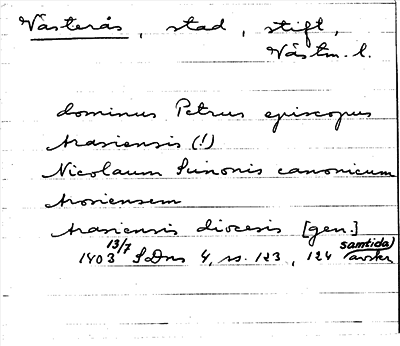 Västerås, stad, stift,
Västm. l.
dominus Petrus episcopus
Arasiensis (!)
Nicolaum Sunonis canonicum
Arosiensem
Arasiensis diocesis [gen.]
1403 13/7 SDns 1, ss. 123, 124 (samtida avskr)